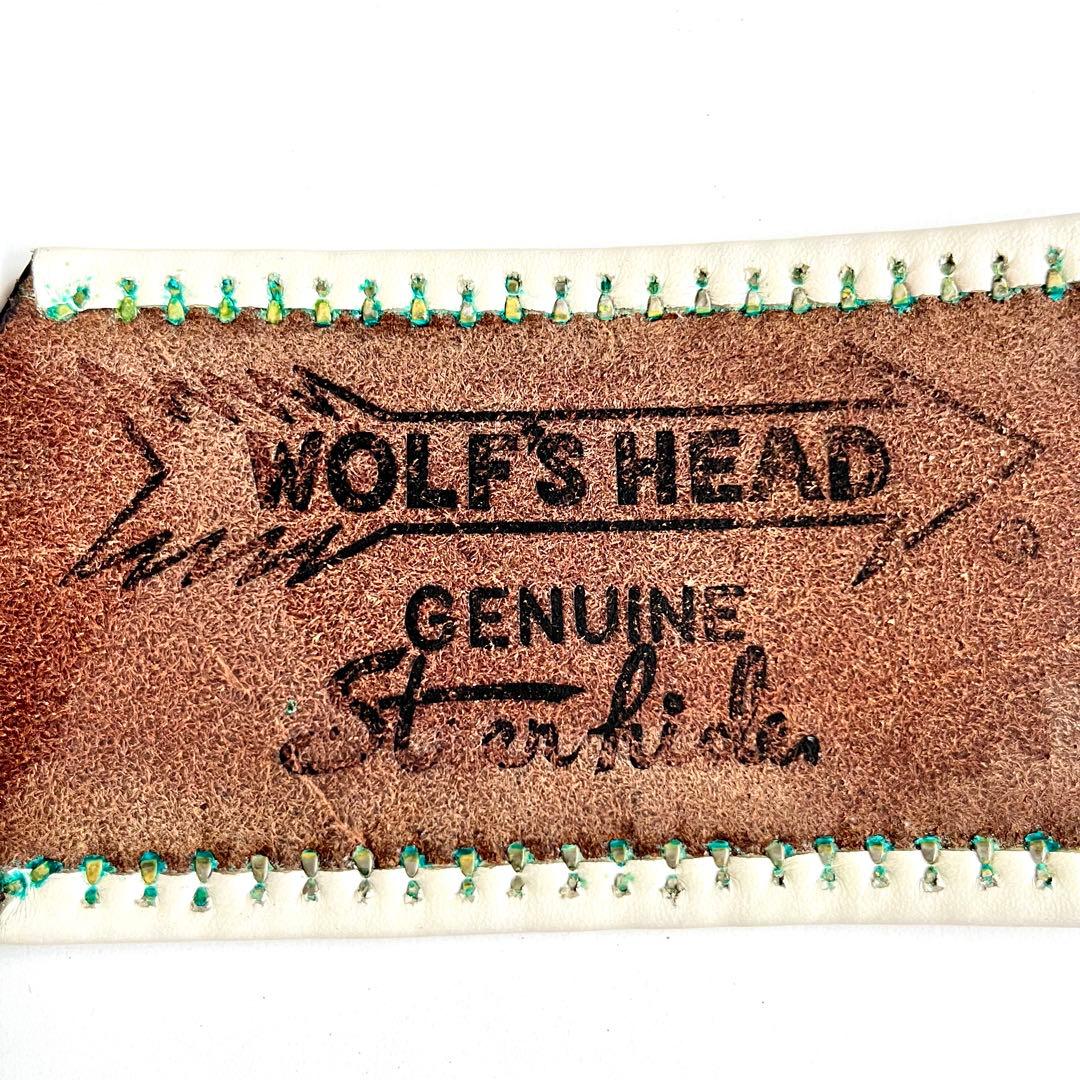 WOLF'S HEAD
GENUINE
Steerhide